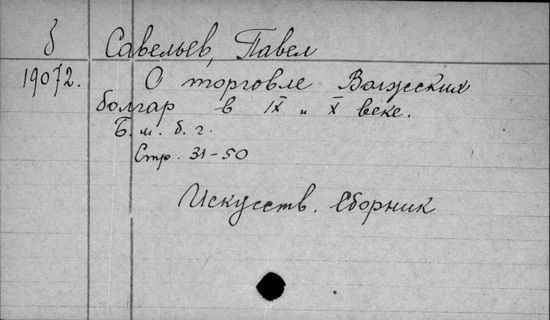 δ Савельев, Павел
19072. О торговле Волжских
болгар в IX и X веке.
Б. м. б. г.
Стр. 31-50
Искусств. сборник